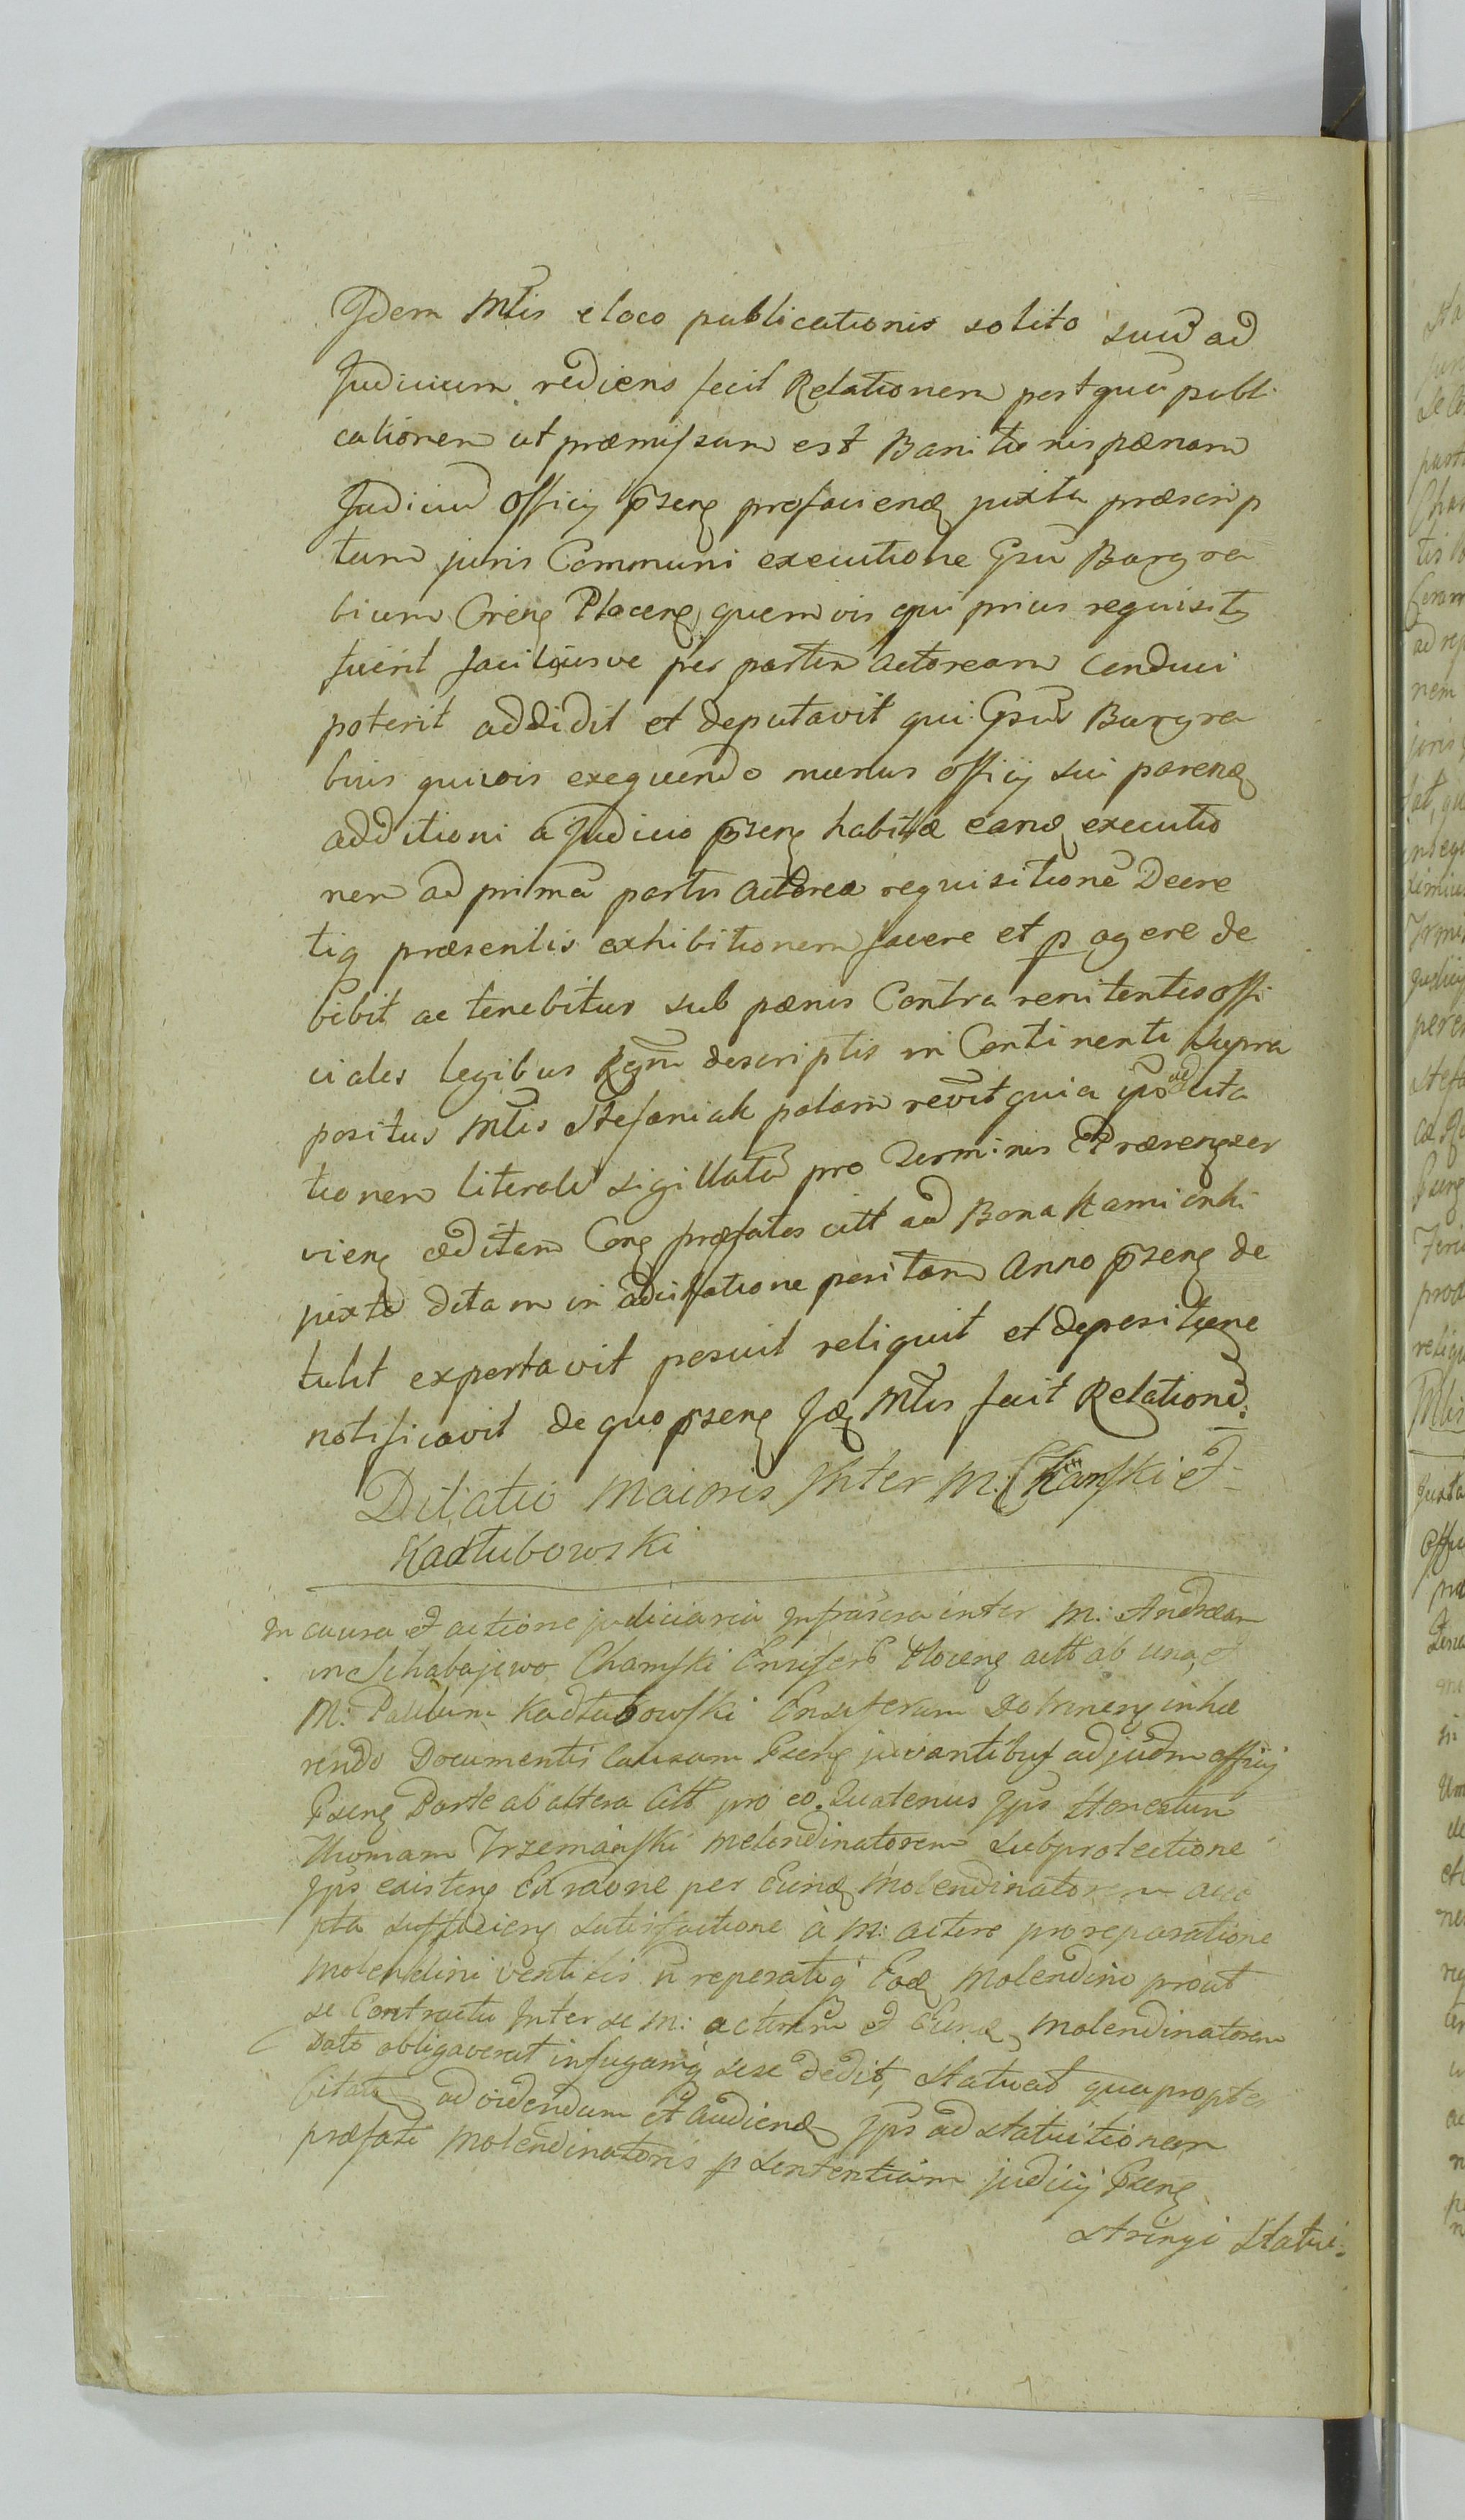 Idem Mtis e loco publicationis solito suū ad
Judicium rediens fecit Relationem post quā publi
cationem ut præmissum est Banitionis pænam
Judiciū Officij p̄sens profaciend juxta præscrip
tum juris Communi executione Gsū Burgra
bium Plocens quemvis qui prius requisits
fuerit faciliusve per partem actoream conduci
poterit addidit et deputavit qui Gsūs Burgra
bius quivis exequendo munus officij sui parend
additioni a Judicio p̄sens habitæ eand executio
nem ad primā partis actorea requisitionē Decre
tiq præsentis exhibitionem facere et p agere de
bebit ac tenebitur sub pænis Contra renitentes offi
ciales legibus Regni descriptis in Continenti supra
positus Mtis Stefaniak palam rēvit quia ips ad cita
tionem literalē sigillatā pro Terminis Præsens ser
viens æditam præfatos citt ad Bona Kamionki
juxta ditam in positam Anno p̄sens de
tulit exportavit posuit reliquit et depositione
notificavit de quo p̄sens Id Mtis fecit Relationē.
Dilatio Maioris Inter M. Chamski et
Kadłubowski
In causa et actione judiciaria Infrascra inter M: Andream
in Schabajewo Chamski Ensifero Plocens actt ab una, et
M: Paulum Kadłubowski Ensiferum Dobrinens inhæ
rendo Documentis Causam P̄sens juvantibus ad judm officij
P̄sens Parte ab altera Citt pro eo. Quatenus Ips Honestum
Thomam Trzemański Molendinatorem sub protectione
Ips existens Ex raōne per Eund Molendinatorem acce
pta sufficiens satisfactione à M: actore pro reparatione
Molendini ventilis n̄ reperatiq Eod Molendino prout
se Contractu Inter se M: actorem et Eund Molendinatorem
Dato obligaverat in fugamq sese dedit, statuat qua propter
Citats ad videndum et audiend Ips ad statuitionem
præfati Molendinatoris p sententiam judicij P̄sens
stringi statui: